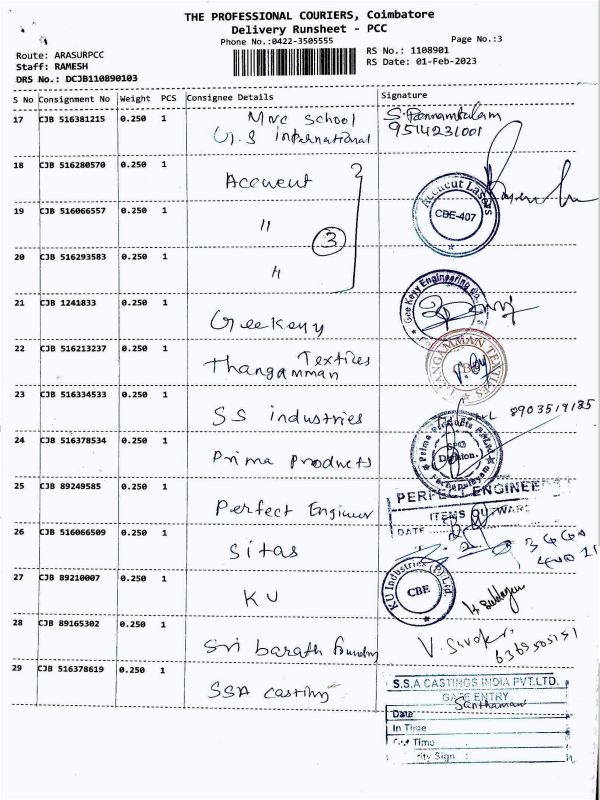 THE PROFESSIONAL COURIERS, Coimbatore
Delivery Runsheet - PCC
Phone No.:0422-3505555
Page No.:3
Route: ARASURPCC
RS No.: 1108901
Staff: RAMESH
RS Date: 01-Feb-2023
DRS No.: DCJB110890103
S No Consignment No Weight PCS Consignee Details Signature
17 CJB 516381215 0.250 1 School
International
9514231001
18 CJB 516280570 0.250 1
Accucut Lasers
CBE-407
19 CJB 516066557 0.250 1 "
3
20 CJB 516293583 0.250 1 "
Gee Keyy Engineering Co.
21 CJB 1241833 0.250 1 GeeKeyy
22 CJB 516213237 0.250 1 Textiles
Thangamman
THANGAMMAN TEXTILES
23 CJB 516334533 0.250 1 SS industries
8903519185
24 CJB 516378534 0.250 1 Prima Products
Division.
25 CJB 89249585 0.250 1 Perfect Engineer
PERFECT ENGINEE
ITEMS OUTWAR
DATE
26 CJB 516066509 0.250 1 Sitas
27 CJB 89210007 0.250 1 KU
KU Industries (P) Ltd
CBE
28 CJB 89165302 0.250 1 Sri barath foundry
29 CJB 516378619 0.250 1 SSA casting
S.S.A CASTINGS INDIA PVT.LTD.
GATE ENTRY
Date
In Time
Time
Sign :